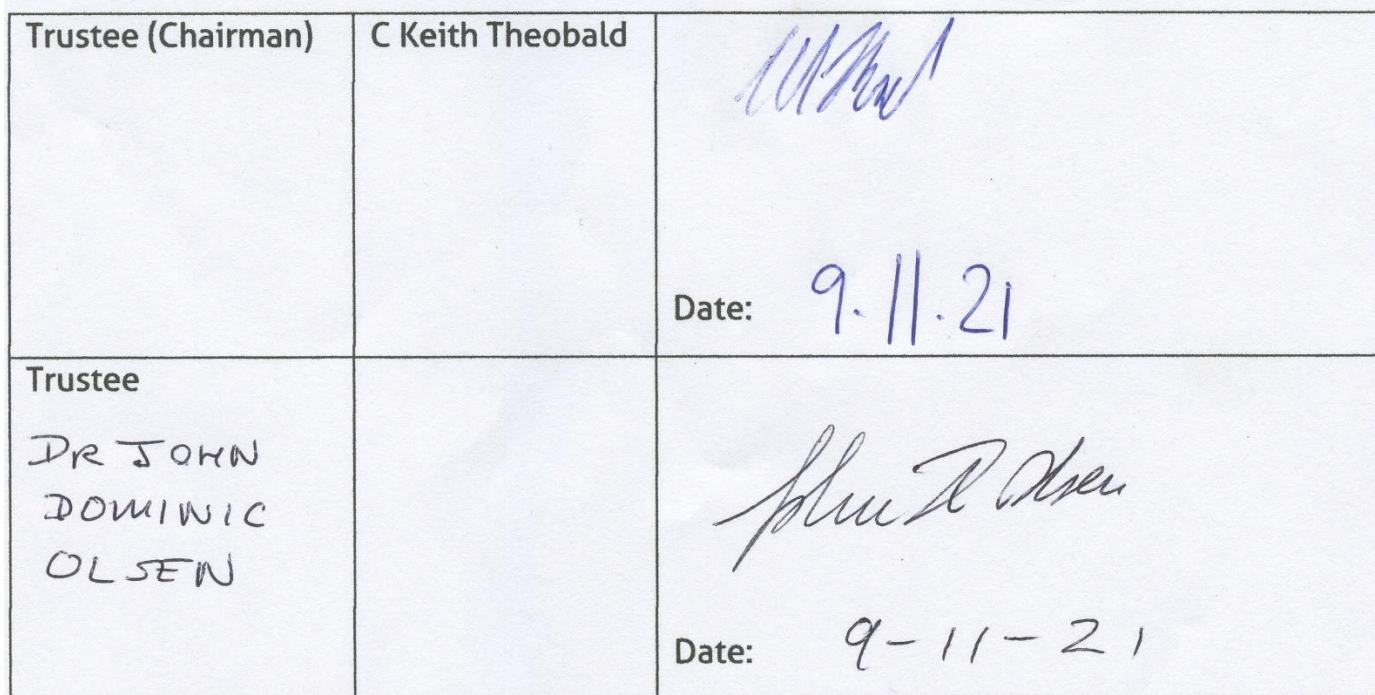 Trustee (Chairman)
C Keith Theobald
Date: 9.11.21
Trustee
DR JOHN
DOMINIC
OLSEN
John D Olsen
Date: 9-11-21